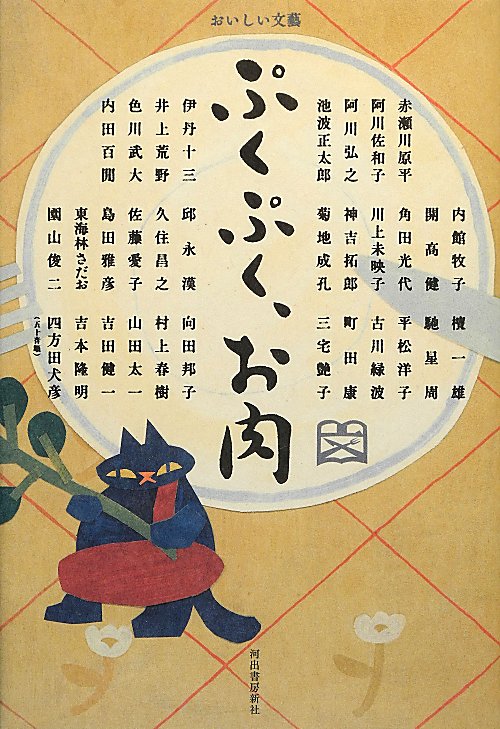 おいしい文藝
ぷくぷく、お肉
赤瀬川原平
阿川佐和子
阿川弘之
池波正太郎
伊丹十三
井上荒野
色川武大
内田百閒
内館牧子
開高健
角田光代
川上未映子
神吉拓郎
菊地成孔
邱永漢
久住昌之
佐藤愛子
島田雅彦
東海林さだお
園山俊二
檀一雄
馳星周
平松洋子
古川緑波
町田康
三宅艶子
向田邦子
村上春樹
山田太一
吉田健一
吉本隆明
四方田犬彦
(五十音順)
河出書房新社